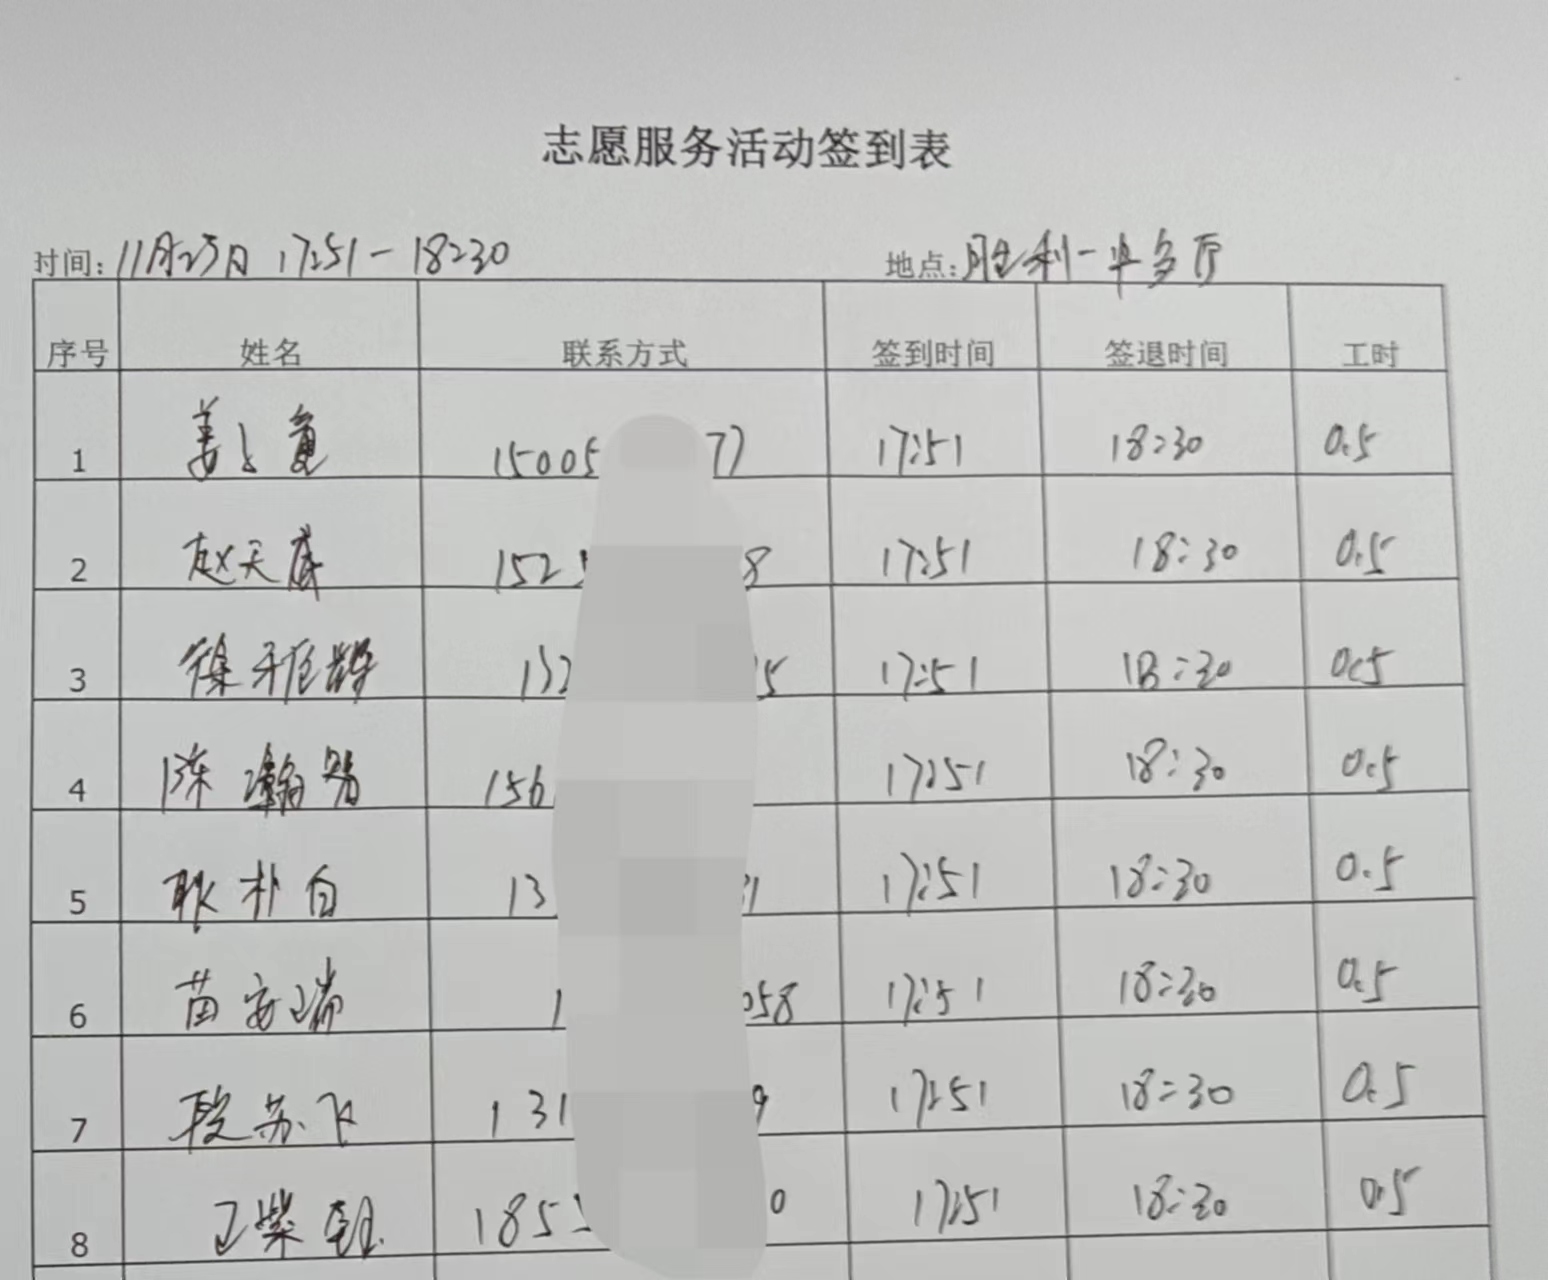 志愿服务活动签到表
时间: 11月25日 17:51-18:30 地点:胜利一
序号 姓名 联系方式 签到时间 签退时间 工时
1 姜 15005 77 17:51 18:30 0.5
2 赵天盛 152 8 17:51 18:30 0.5
3 徐雅 132 5 17:51 18:30 0.5
4 陈瀚 156 17:51 18:30 0.5
5 耿朴白 13 31 17:51 18:30 0.5
6 苗安瑞 1 058 17:51 18:30 0.5
7 段苏飞 131 9 17:51 18:30 0.5
8 王紫钰 185 0 17:51 18:30 0.5